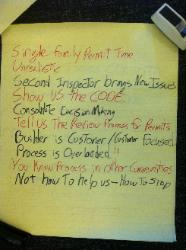 Single Family Permit Time
Unrealistic
Second Inspector brings New Issues
Show US the CODE
Consolidate Decision Making
Tell us The Review Process for Permits
Builder is Customer/Customer Focused
Process is Overloaded !!
You Know Process in other Communities
Not How To help us - How To Stop